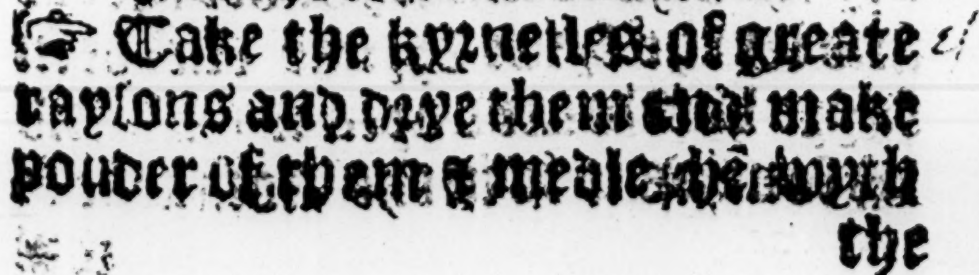 ☞ Take the kyrnelles of greate
raysons and drye them and make
pouder of them & medle thē wyth
the